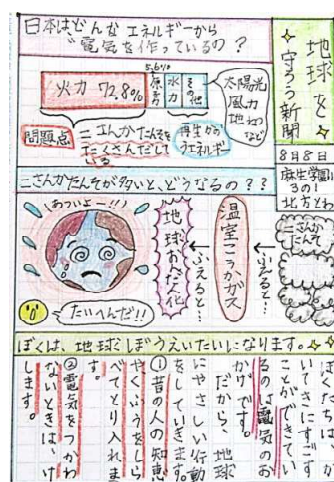 地球を
守ろう新聞
8月8日
麻生学園小
3の1
北方とわ
日本はどんなエネルギーから
電気を作っているの？
火力 72.8%
原子力
水力
その他
太陽光
風力
地ねつ
など
問題点
二さんかたんそを
たくさんだして
いる
再生かのう
エネルギー
二さんかたんそが多いと、どうなるの？？
二さんか
たんそ
ふえると…
温室こうかガス
ふえると…
地球おんだん化
あついよー!!
たいへんだ!!
ぼくは、地球ぼうえいたいになります。
ぼくたちは、か
いてきにすごす
ことができてい
るのは電気のお
かげです。
だから、地球
にやさしい行動
をしていきます。
①昔の人の知恵
やくふうをしら
べてとり入れま
す。
②電気をつかわ
ないときは、け
します。